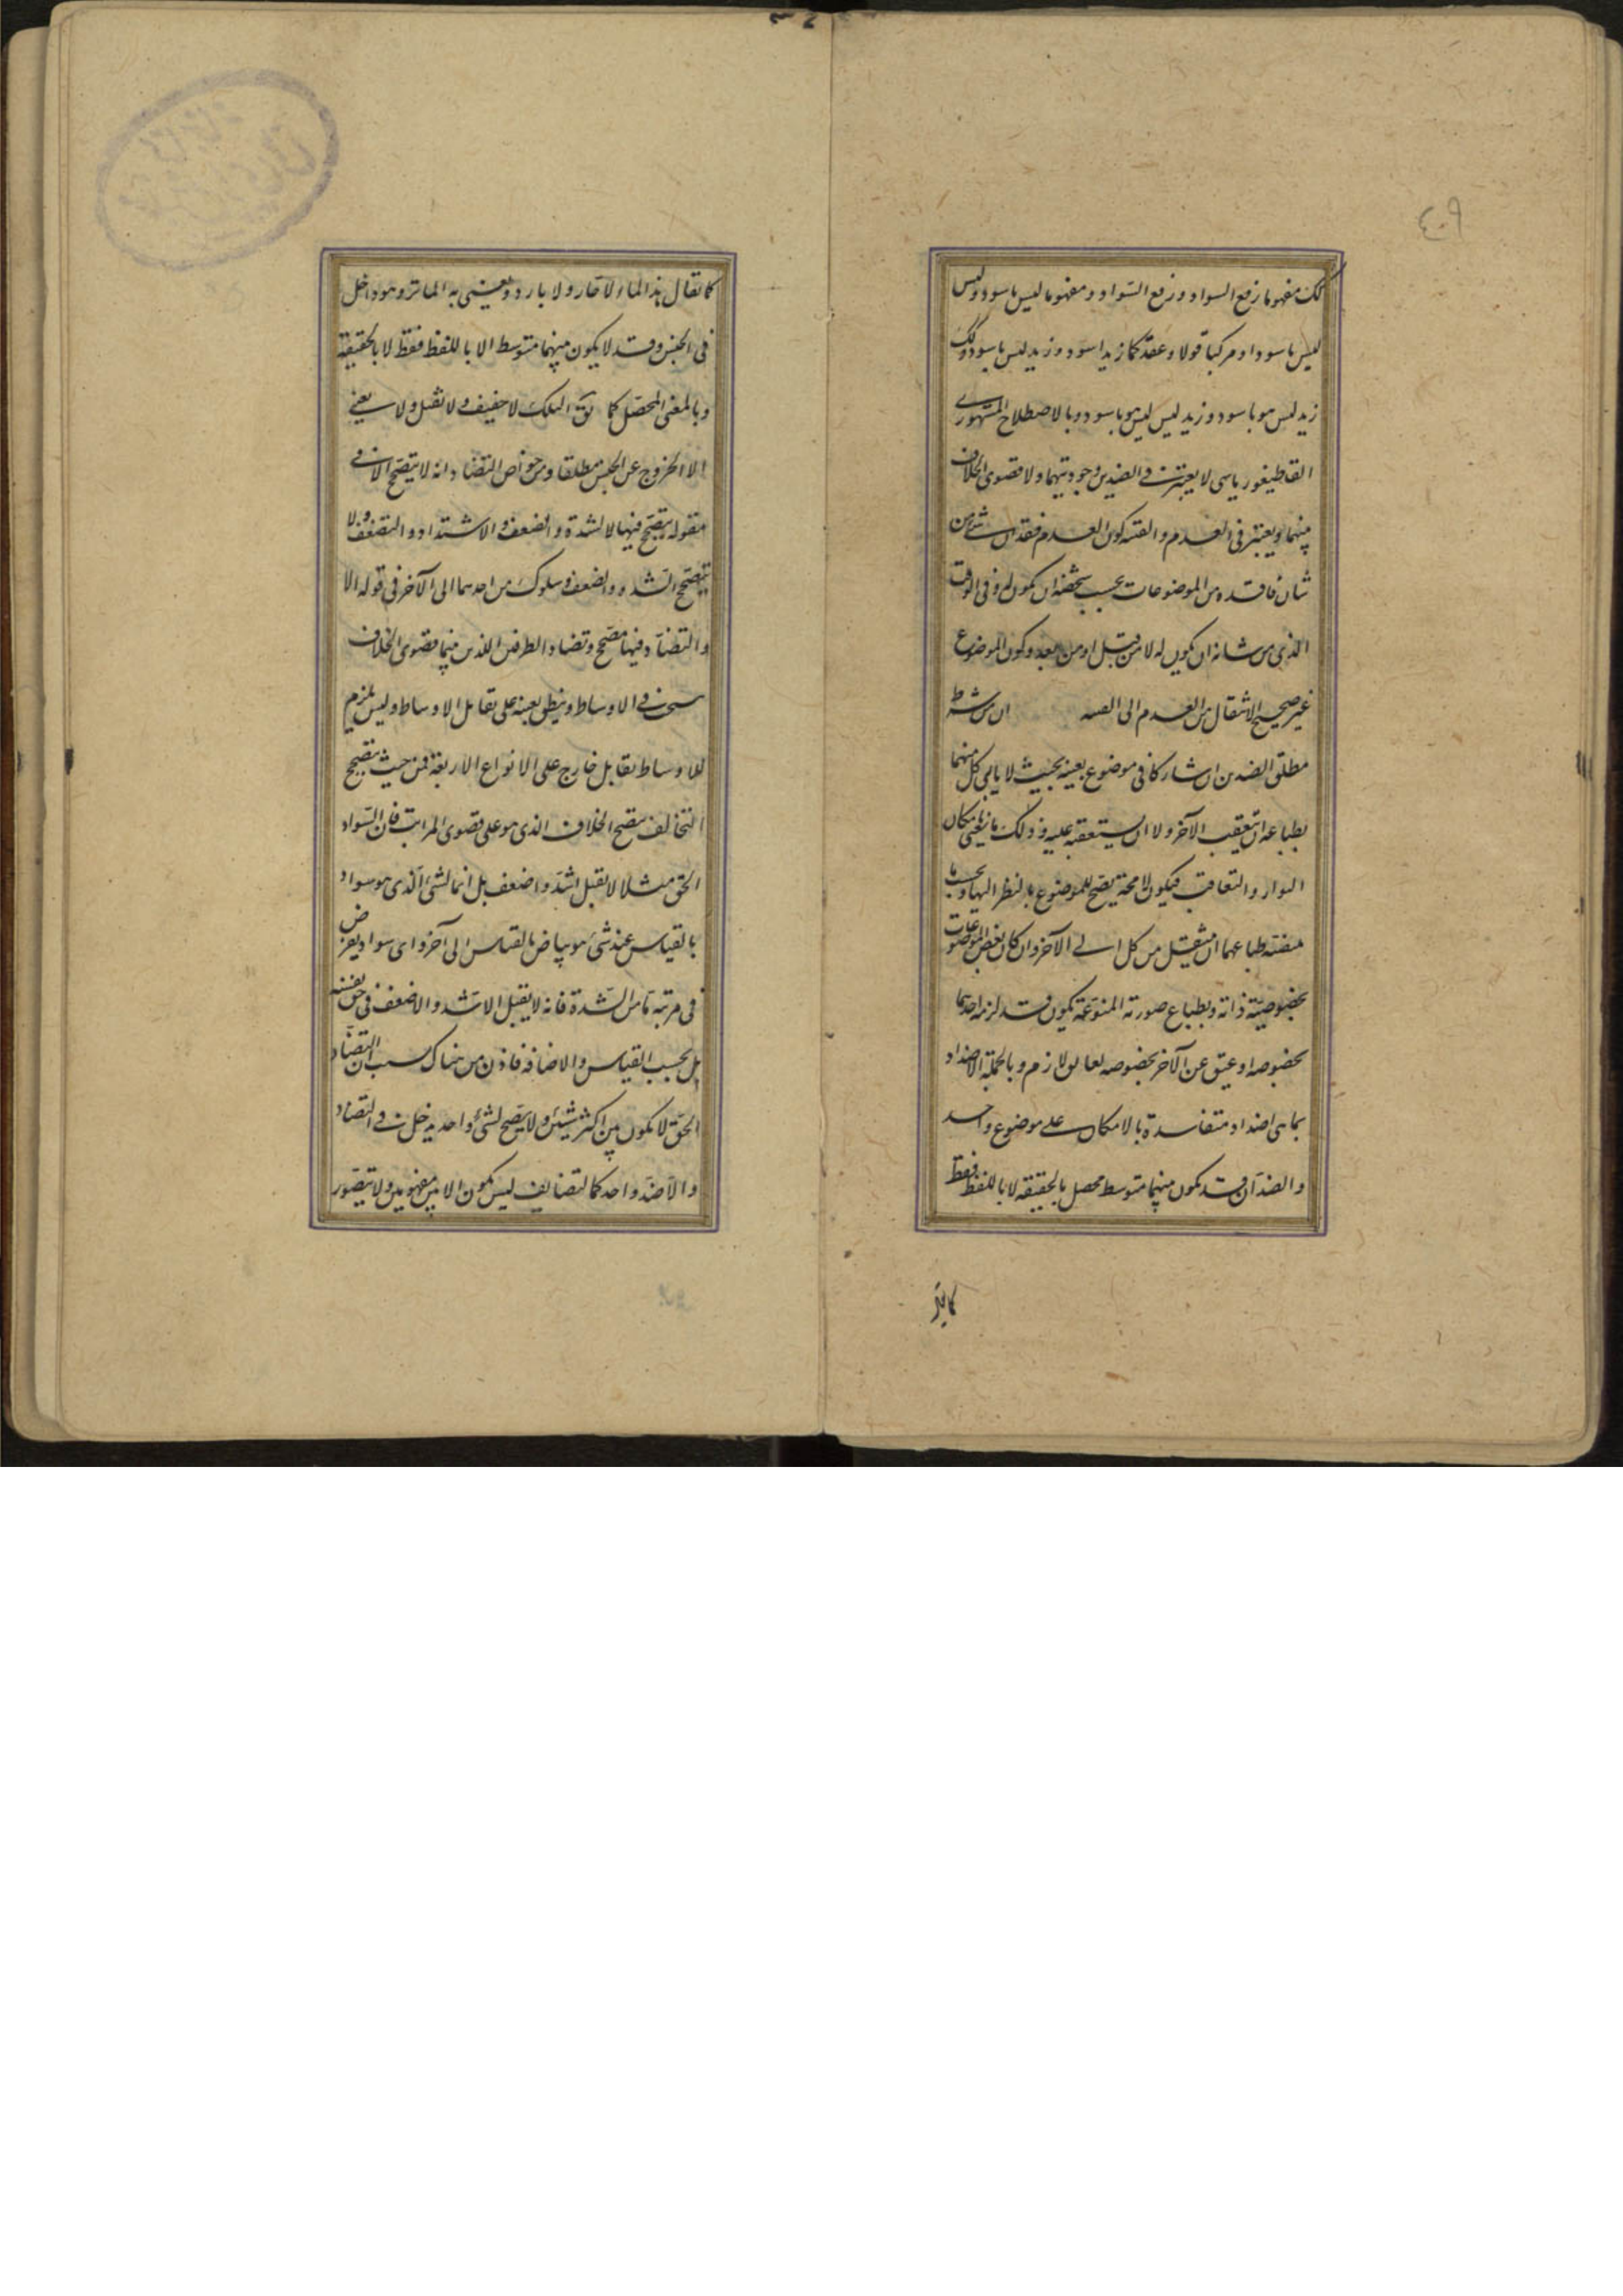 ٤٠٩
لك مفهوما رفع السواد ورفع السواد ومفهوما ليس باسود وليس
ليس باسود او مركبا قولا وعقد كما زيد اسود وزيد ليس باسود وكك
زيد ليس هو باسود وزيد ليس ليس هو باسود وبالاصطلاح المشهوري
القاطيغورياسى لا يعتبر في الضدين وجوديتهما ولا قصوى الخلاف
بينهما ويعتبر فى العدم والقنيه كون العدم فقدان شئ من
شان فاقده من الموضوعات بحسب شخصه ان يكون له وفى الوقت
الذى من شانه ان يكون له لا من قبل او من بعد وكون الموضوع
غير صحيح الانتقال من العدم الى ان من شرط
مطلق الضدين ان شاركا فى موضوع بعينه بحيث لا يابى كل منهما
بطباعه ان يتعقب الآخر ولا ان يستعقبه عليه وذلك امكان
التوارد والتعاقب فيكون لا محة يصح للموضوع بالنظر اليهما وبحسب ما
طباعهما ان ينتقل من كل الى الآخر وان كان بعض الموضوعات
بخصوصية ذاته وبطباع صورته المنوعة يكون قد لزمه احدهما
بخصوصه او عيق عن الآخر بخصوصه لعائق لازم وبالجملة الاضداد
بما هى اضداد متفاسدة بالامكان على موضوع واحد
والضدان قد يكون بينهما متوسط محصل بالحقيقه لا باللفظ فقط
كما يقال
كما يقال هذا الماء لا حار ولا بارد ويعنى به الفاتر وهو داخل
فى الجنس وقد لا يكون بينهما متوسط الا باللفظ فقط لا بالحقيقة
وبالمعنى المحصل كما يق الفلك لا خفيف ولا ثقيل ولا يعنى
الا الخروج عن الجنس مطلقا ومن خواص التضاد انه لا يتصحح الا فى
مقوله يتصحح فيها الشدة والضعف والاشتداد والتضعف ولا
يتصحح الشدة والضعف وسلوك من احدهما الى الآخر فى قوله الا
والتضاد فيها مصحح وتضاد الطرفين اللذين بينهما قصوى الخلاف
في الاوساط وينطبق بعينه على تقابل الاوساط وليس يلزم
للاوساط تقابل خارج على الانواع الاربعة فمن حيث تصحح
التخالف تصحح الخلاف الذى هو على قصوى المراتب فان السواد
الحق مثلا لا يقبل اشد واضعف بل انما الشئ الذى هو سواد
بالقياس عند شئ هو بياض بالقياس الى آخر واى سواد يفرض
فى مرتبة ما من الشدة فانه لا يقبل الاشد والاضعف فى حق نفسه
بل بحسب القياس والاضافه فاذن من هناك ان التضاد
الحق لا يكون بين اكثر من شيئين ولا يصح لشئ واحد يدخل في التضاد
والا ضد واحد كما التضايف ليس يكون الا بين مفهومين ولا يتصور